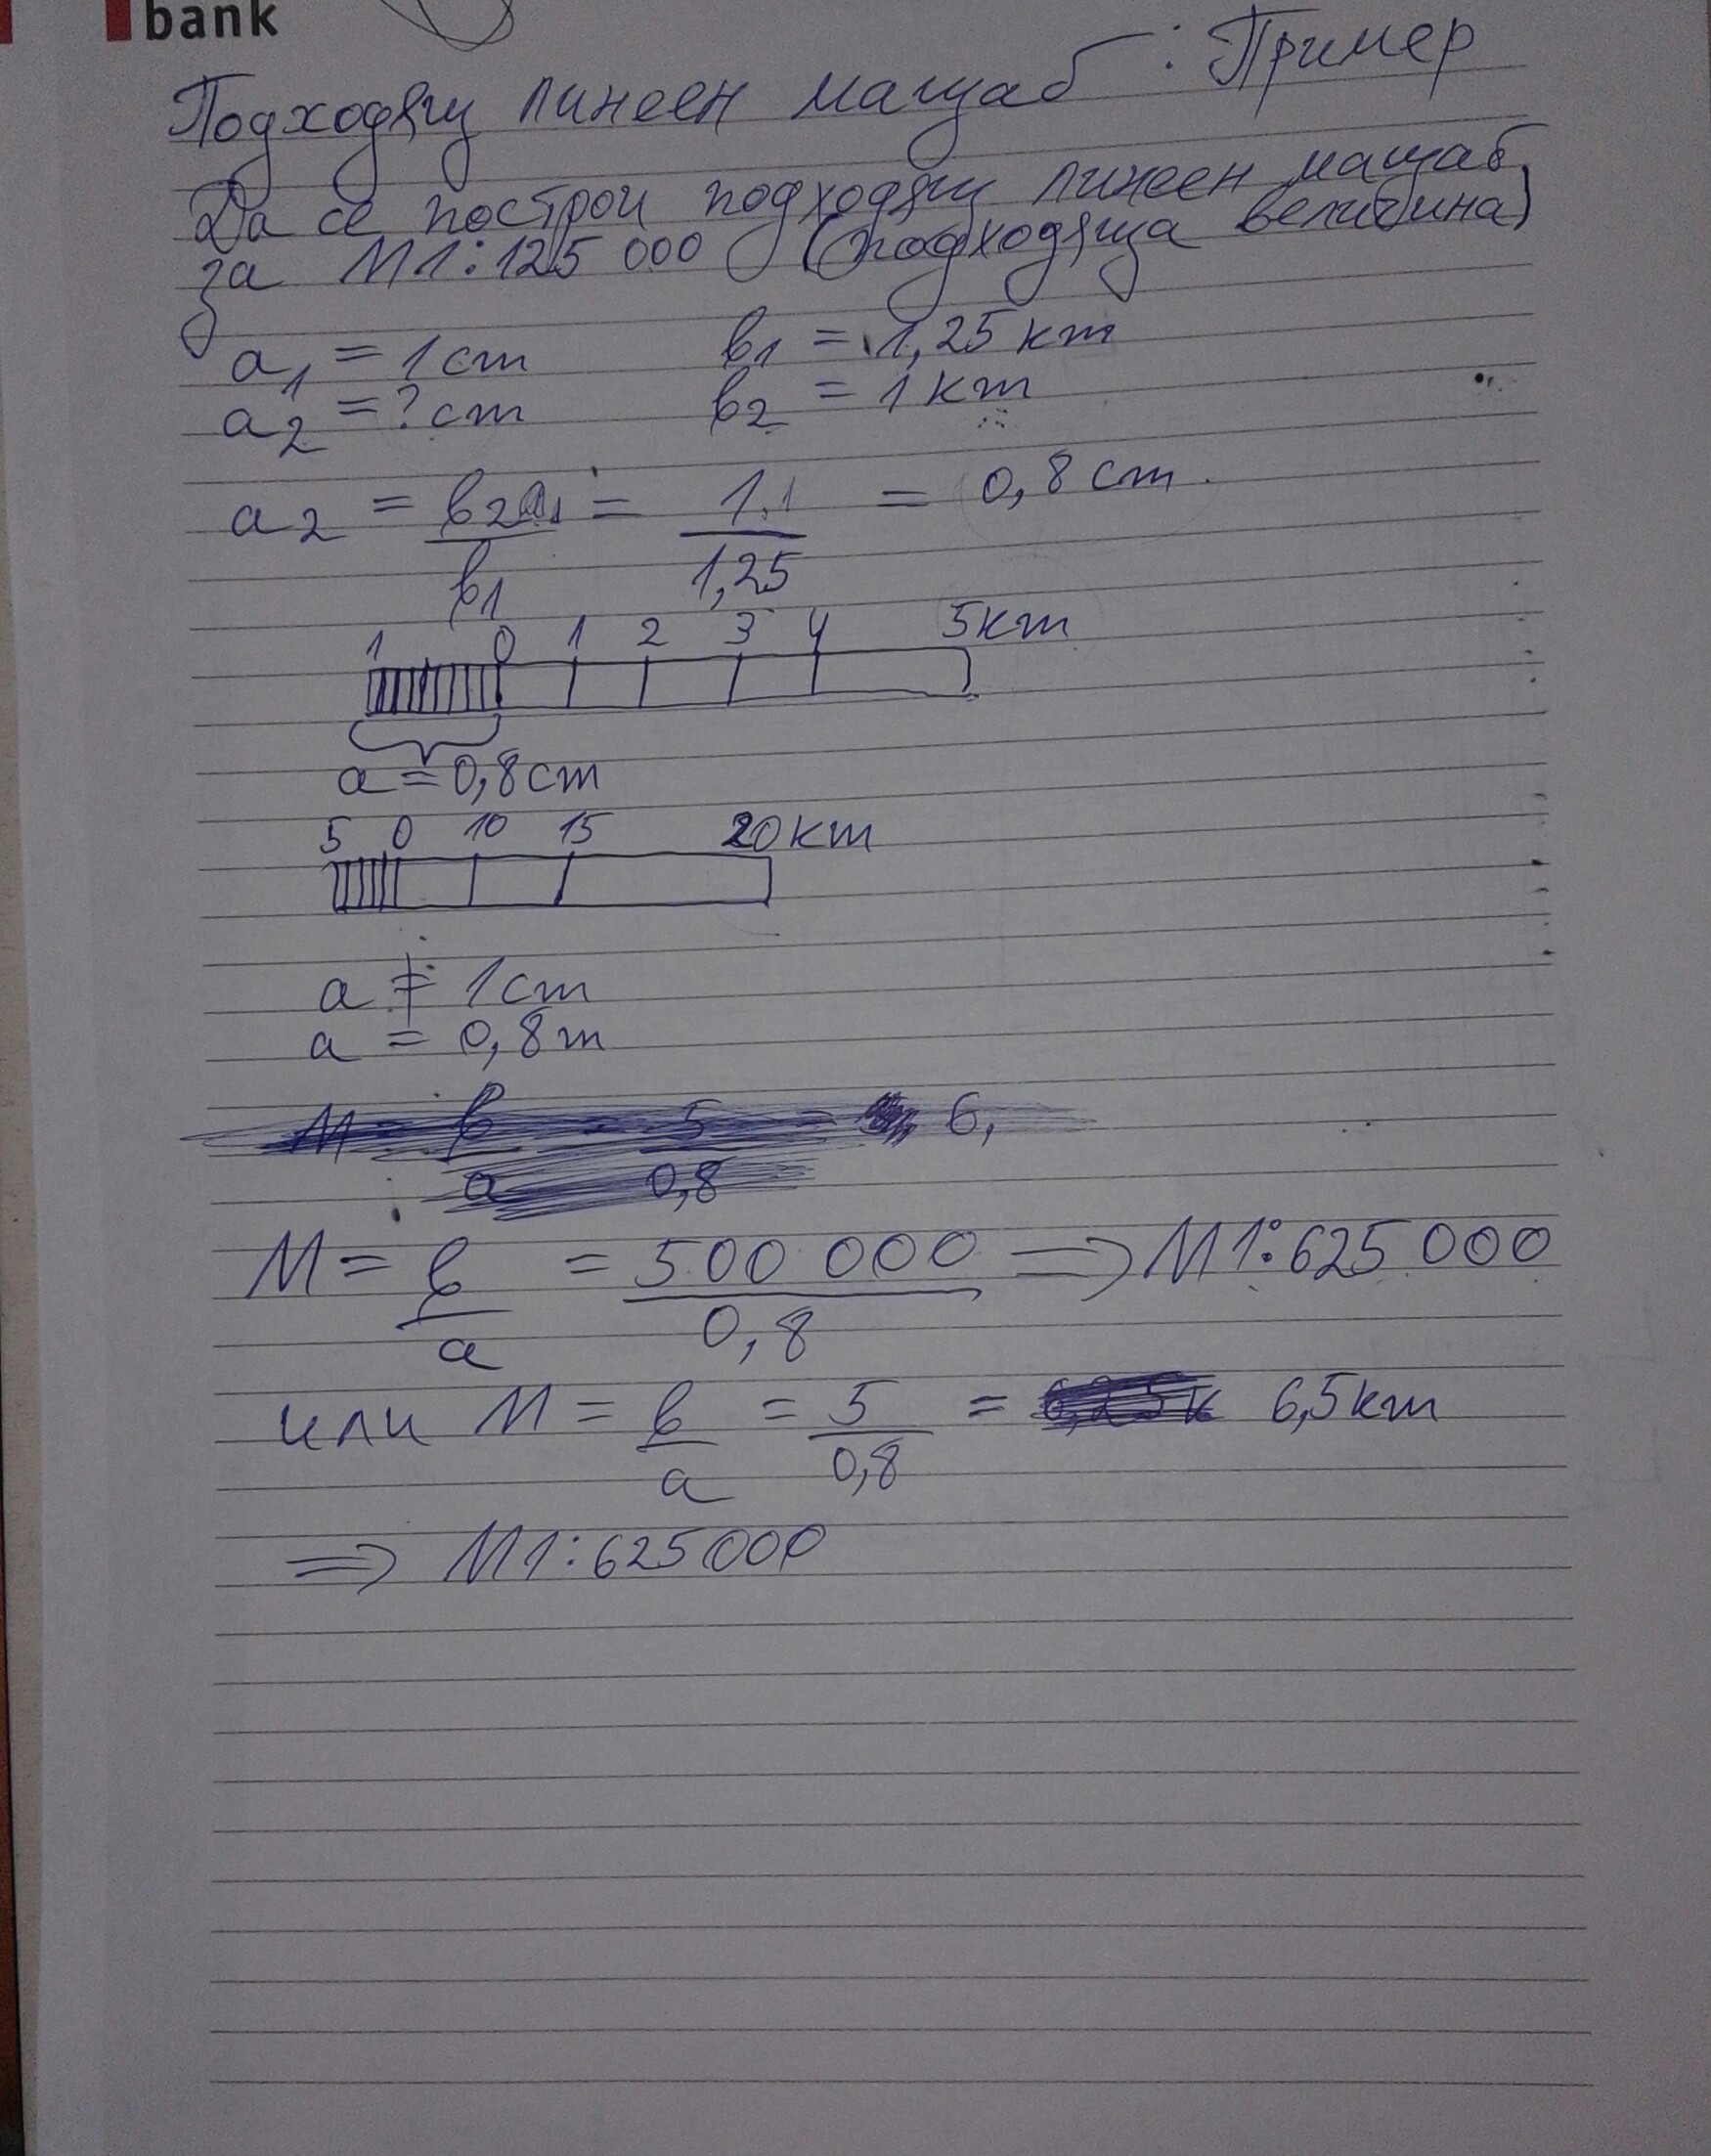 bank
Подходящ линеен мащаб: Пример
Да се построи подходящ линеен мащаб
за M1:125 000 (подходяща величина)
a1 = 1 cm b1 = 1,25 km
a2 = ? cm b2 = 1 km
a2 = b2a1 = 1.1 = 0,8 cm
b1 1,25
1 0 1 2 3 4 5 km
a = 0,8 cm
5 0 10 15 20 km
a ≠ 1 cm
a = 0,8 m
M = b = 5 = 6,
a 0,8
M = b = 500 000 => M1:625 000
a 0,8
или M = b = 5 = 6,25к 6,5 km
a 0,8
=> M1:625000